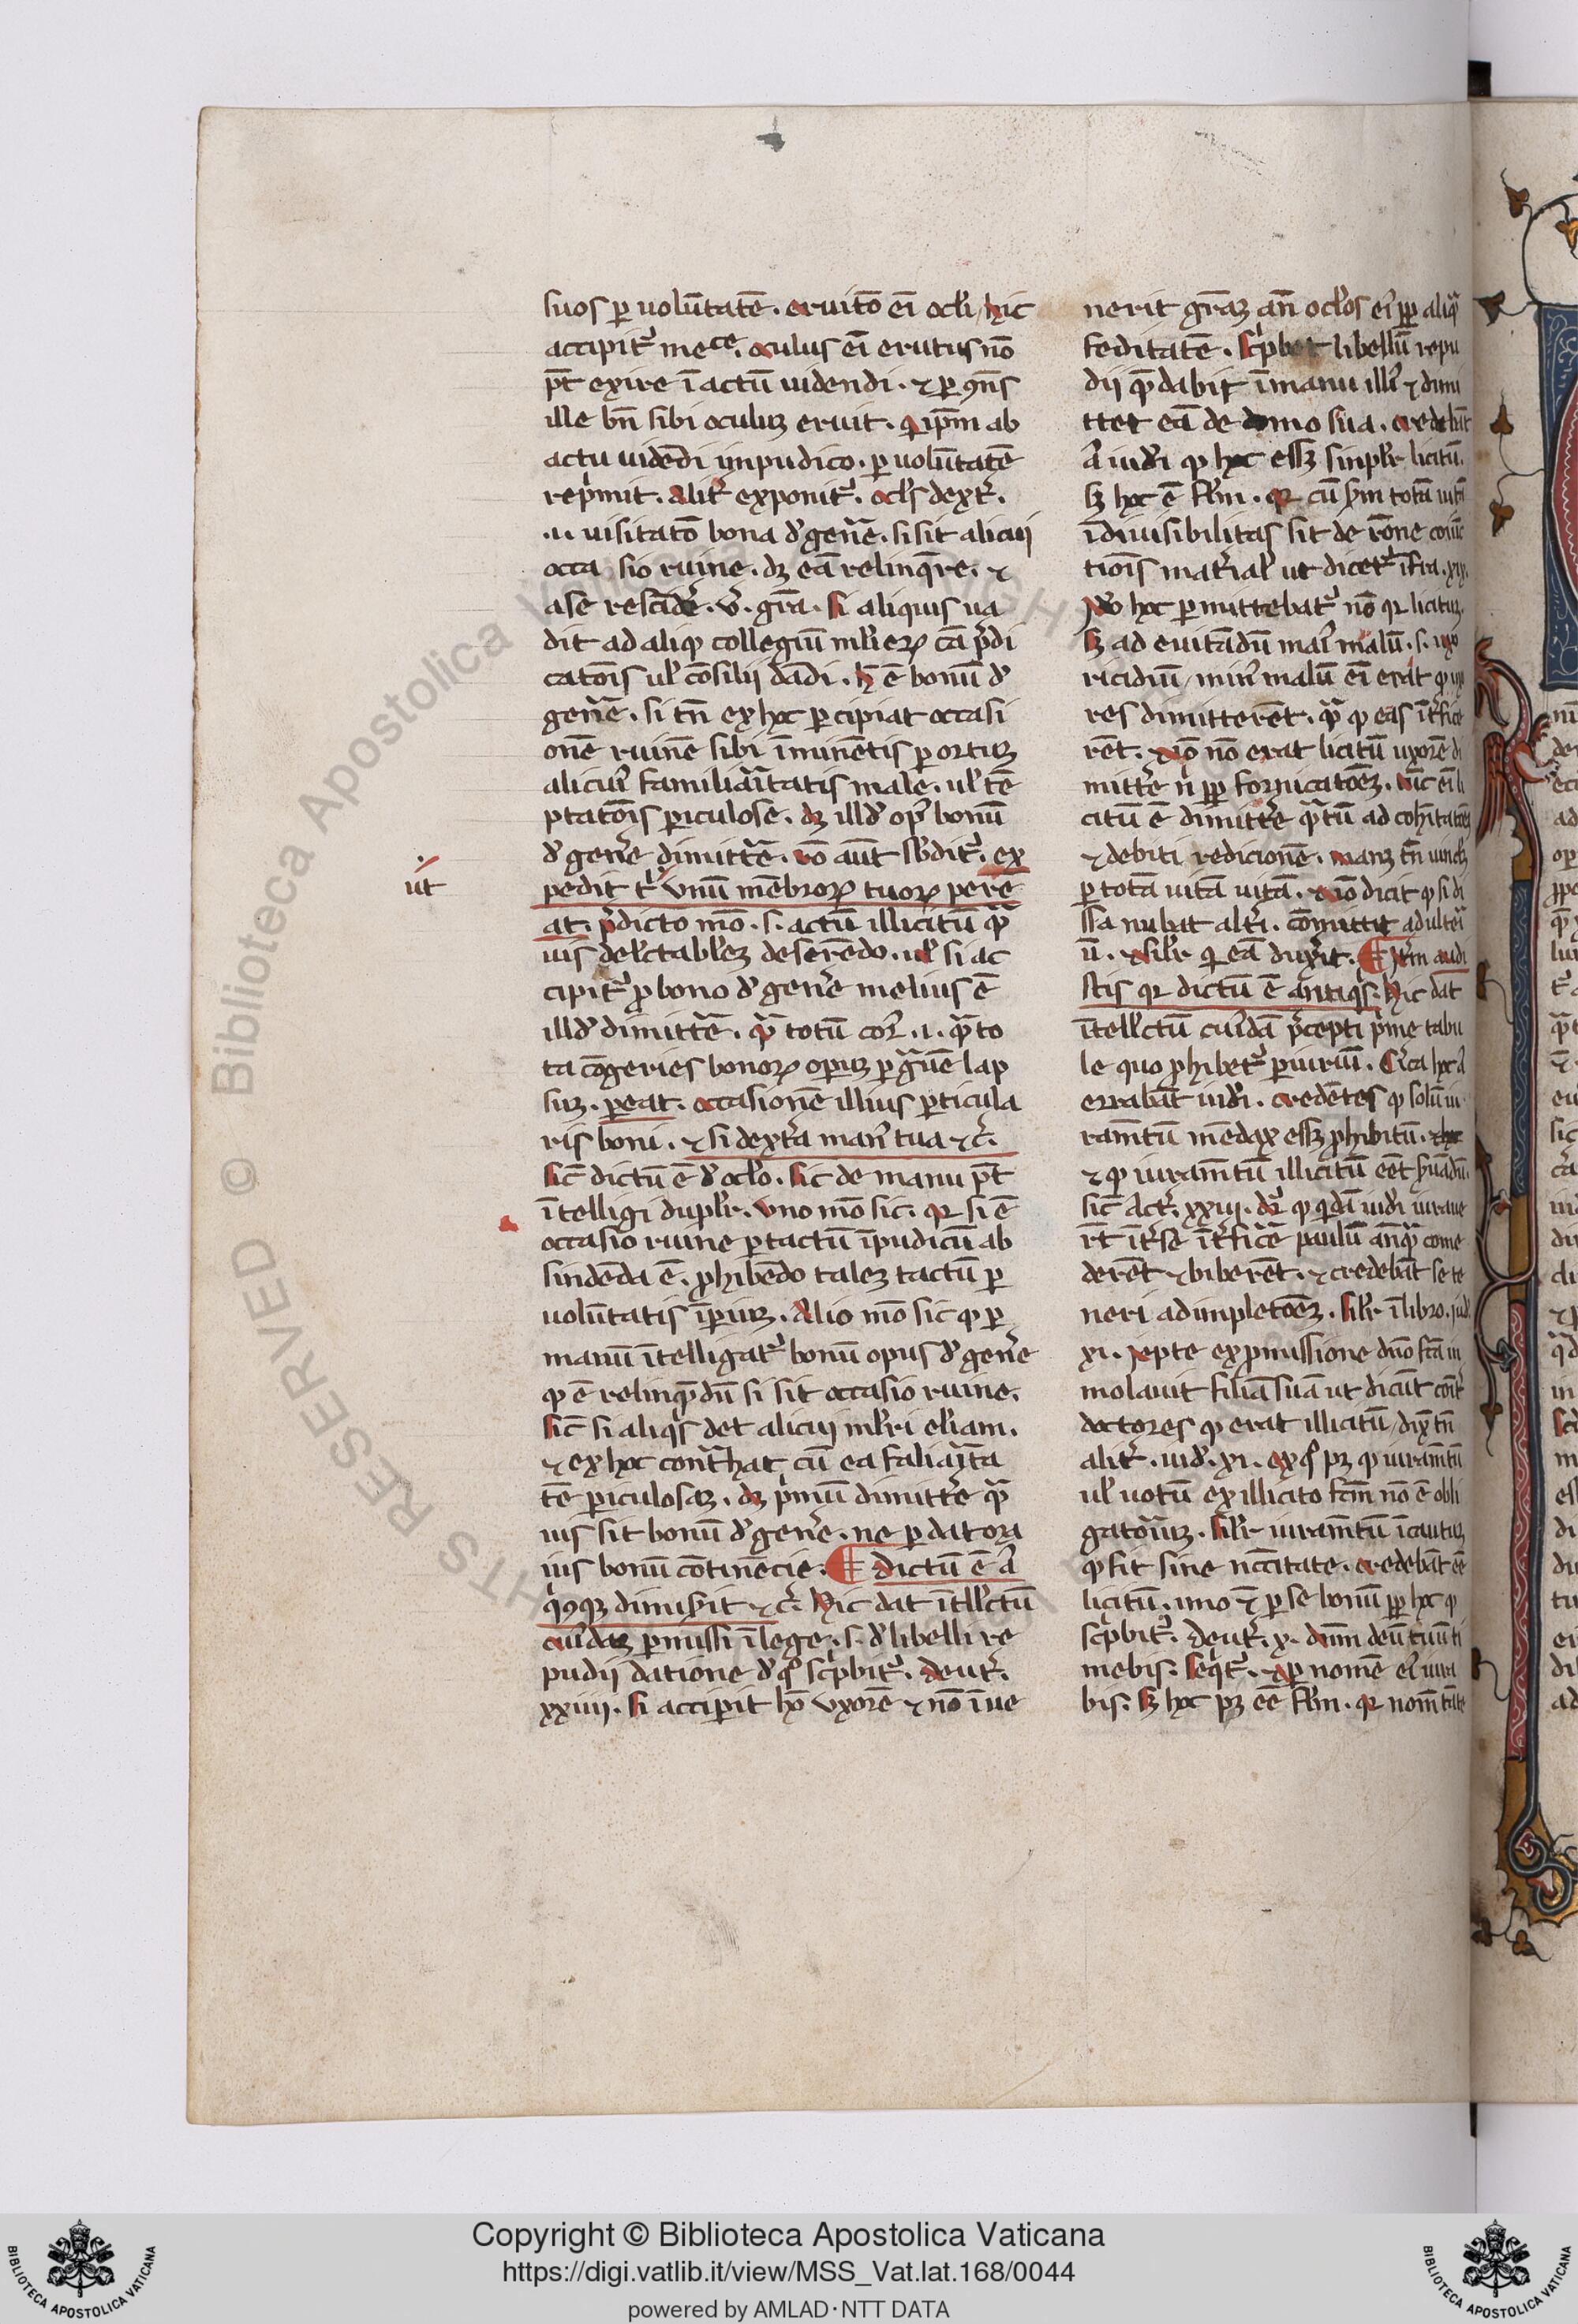 suos ꝑ uolūtatē. eruitō eī ocłi hic
accipit᷑ mece. oculus eī erutus nō
pt̄ exire ī actū uidendi. ⁊ ꝑ ꝯn̄s
ille bn̄ sibi oculuꝫ eruit. qͥ ip̄m ab
actu uidēdi īpudico. ꝑ uolūtatē
rep̍mit. Alit᷑ exponit᷑. ocłs dext᷑.
.i. uisitatō bona đ gen̄e. si sit alicui
occa sio ruine. dꝫ eā relinq̄re. ⁊
a se
dit ad aliqͦ collegiū młieꝝ cā p̄di
catōis uł cōsilii dādi. h̄ ē bonū đ
gen̄e. si tn̄ ex hoc ꝑcipiat occasi
onē ruine sibi īminētis ꝑ ortuꝫ
alicuiꝰ familiaītatis male. uł tē
ptatōis ꝑiculose. dꝫ illđ opꝰ bonū
đ gen̄e dimitt̄e. iō aūt sƀdit᷑. ex
pedit t᷑ ut unū mēbroꝝ tuoꝝ pere
at. p̄dicto mō .s. actū illicitū qͣ
uis delēctabłeꝫ deserēdo. uł si ac
cipit᷑ ꝓ bono đ gen̄e melius ē
illđ dimitt̄e. qͣ totū corꝰ .i. qͣ to
ta cōgeries bonoꝝ opuꝫ ꝑ gͣuē lap
suꝫ. pereat. occasionē illius ꝑticula
ris boni. ⁊ si dext̄a manꝰ tua ⁊c̄.
Sic̄ dictū ē đ ocło. sic de manu pt̄
ītelligi dupłr. uno mō sic. qꝛ si ē
occasio ruine ꝑ tactū īpudicū ab
sindēda ē. ꝓhibēdo taleꝫ tactū ꝑ
uolūtatis īperiuꝫ. Alio mō sic qͦ ꝑ
manū ītelligat᷑ bonū opus đ gen̄e
qͦ ē relinq̄dū si sit occasio ruine.
Sic̄ si aliqͥs det alicui młri ełiam.
⁊ ex hoc contͣhat cū ea faliaītā
tē ꝑiculosaꝫ. dꝫ p̍mū dimitt̄e qͣ
uis sit bonū đ gen̄e. ne ꝑdat ora
ius bonū cōtinēcie. ¶ dictū ē aͧ
qͥcūqꝫ dimisit ⁊c̄. Hic dat ītellc̄tū
cuiꝰdaꝫ ꝑmissi ī lege. s. đ libelli re
pudii datione đ qͦ sc̍bit᷑. deut̄.
xxiiii. Si acciꝑit hō uxorē ⁊ nō īue
nerit gr̄aꝫ an̄ ocłos eiꝰ ꝓpt aliqͣ
feditatē. Sc̍bet libellū repu
dii q̄ dabit ī manu illiꝰ ⁊ dimi
ttet eā de domo sua. credebāt
aͧ iud̄i qͦ hoc essꝫ simpłr licitū.
sꝫ hoc ē fłm. qꝛ cū ẜm totā uitā
īdiuisibilitas sit de rōne cōiūc
tiōis mat̍ial ut dicet᷑ īfra. xix.
Iō hoc ꝑmittebat᷑ nō qꝛ licituꝫ.
sꝫ ad euitādū maiꝰ malū. s. uxo
ricidiū. minꝰ malū eī erat qͦ uxo
res dimitterēt. qͣ qͦ eas īt̄fice
rēt. iō nō erat licitū uxorē di
mitt̄e nͥ ꝓpt fornicatōeꝫ. tūc eī li
citū ē dimitt̄e qͣtū ad cohītatōeꝫ
⁊ debiti redicionē. manꝫ tn̄ uinclꝫ
ꝑ totā uitā uitā. ⁊ iō dicit qͦ si di
ssa nubat alt̄i. cōmittit adulteͥ
ū. ⁊ siłr qͥ eā dux̄it. ¶ It̄m audi
stis qꝛ dictū ē antiqͥs. Hic dat
ītellc̄tū cuiꝰdā p̄cepti p̍me tabu
le quo ꝓhibet᷑ ꝑiuriū. Circa hoc aͧ
errabāt iud̄i. credētes qͦ solū iu
ram̄tū mēdax essꝫ ꝓhibitū.
⁊ qͦ iuram̄tū illicitū eēt ẜuādū.
sic̄ Act᷑. xxiii. dr̄ qͦ qͥdā iud̄i iuraue
rt̄ īt̄ se īt̄fice paulū an̄qͣ come
derēt ⁊ biberēt. ⁊ credebāt se te
neri ad impletōeꝫ. siłr ī libro. iud.
xi. Iepte ex ꝓmissione dn̄o fc̄a im
molauit filiā suā ut dicūt cōit̄
doctores qͦ erat illicitū. dix̄ tn̄
alit᷑. iud̄. xi. ex qͦ pꝫ qͦ iuram̄tū
uł uotū ex illicito fc̄m nō ē obli
gatoͥuꝫ. siłr iuram̄tū īcautuꝫ
qͦ fit sine nc̄citate. credebāt eē
licitū. imo ⁊ ꝑ se bonū ꝓpt hoc qͦ
sc̍bit᷑. deut̄. x. dn̄m deū tuū ti
mebis. seqͥt᷑. ⁊ ꝑ nomē eiꝰ iura
bis. sꝫ hoc pꝫ eē fłm. qꝛ
ut
Copyright © Biblioteca Apostolica Vaticana
https://digi.vatlib.it/view/MSS_Vat.lat.168/0044
powered by AMLAD·NTT DATA
BIBLIOTECA APOSTOLICA VATICANA
BIBLIOTECA APOSTOLICA VATICANA